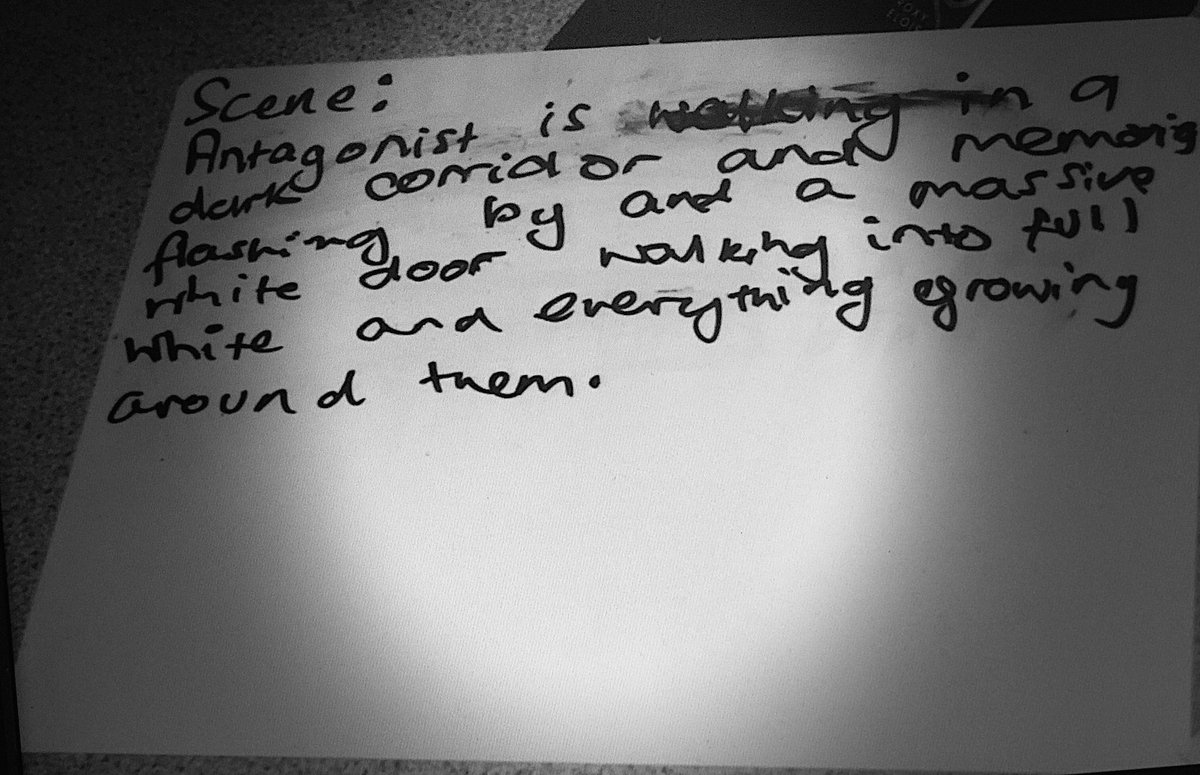 Scene:
Antagonist is walking in a
dark corridor and memoris
flashing by and a massive
white door walking into full
white and everything growing
around them.